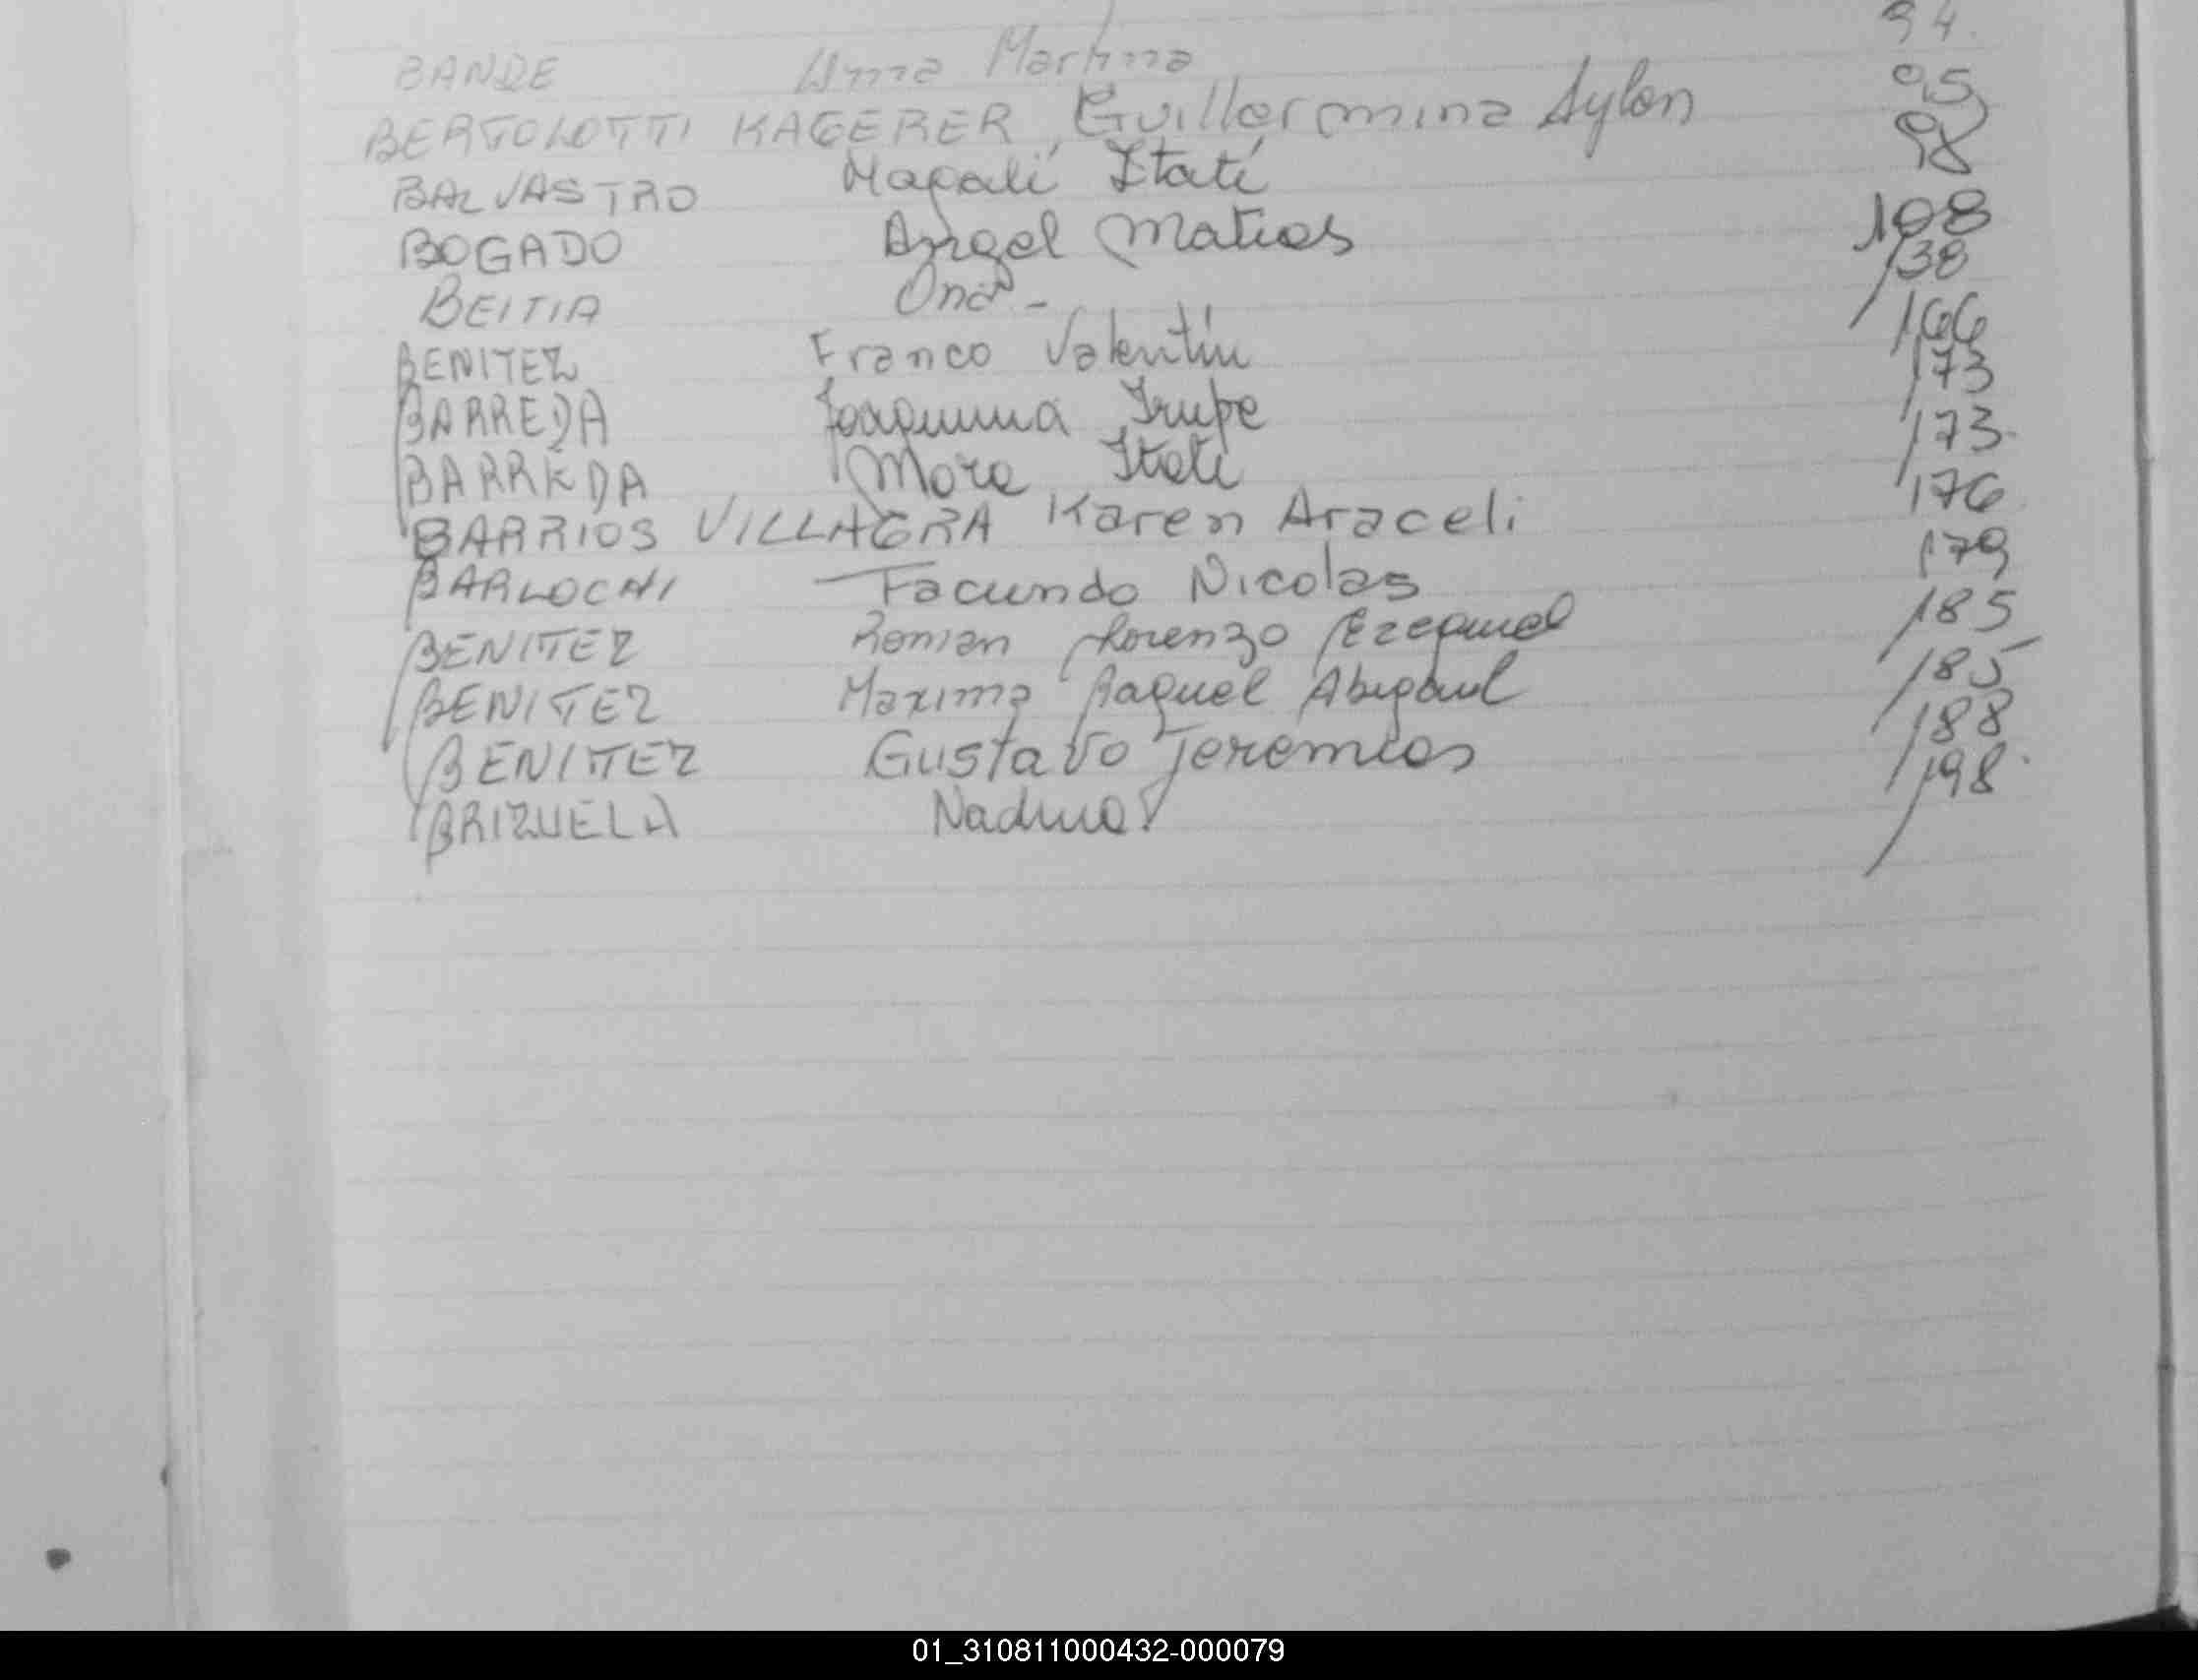 BANDE Anna Martina 94.
BERTOLOTTI KAGERER, Guillermina Aylen 95
BALVASTRO Magalí Itatí 98
BOGADO Angel Matias 108
BEITIA Ona - 138
BENITEZ Franco Valentín 166
BARREDA Joaquina Irupe 173
BARREDA Mora Itati 173
BARRIOS VILLAGRA Karen Araceli 176
BARLOCHI Facundo Nicolas 179
BENITEZ Roman Lorenzo Ezequiel 185
BENITEZ Maxima Raquel Abigail 185
BENITEZ Gustavo Jeremias 188
BRIZUELA Nadina 198
01_310811000432-000079